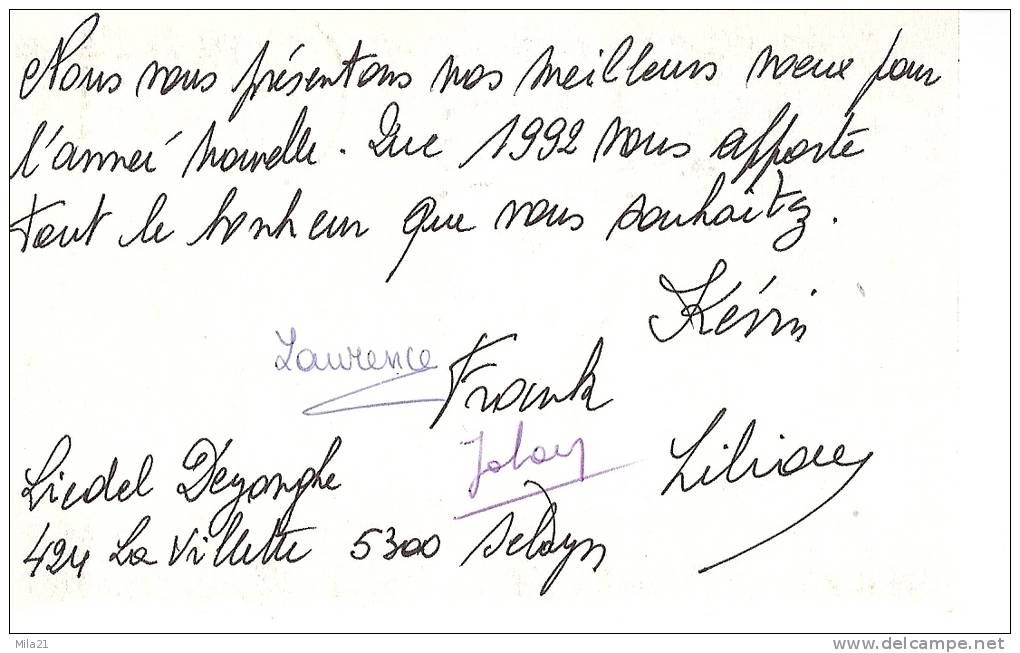 Nous vous présentons nos meilleurs voeux pour
l'anneé nouvelle. Que 1992 vous apporte
tout le bonheur que vous souhaitez.
Kévin
Laurence
Frank
Liliane
424 La Villette 5300 Sclayn
Mila21
www.delcampe.net